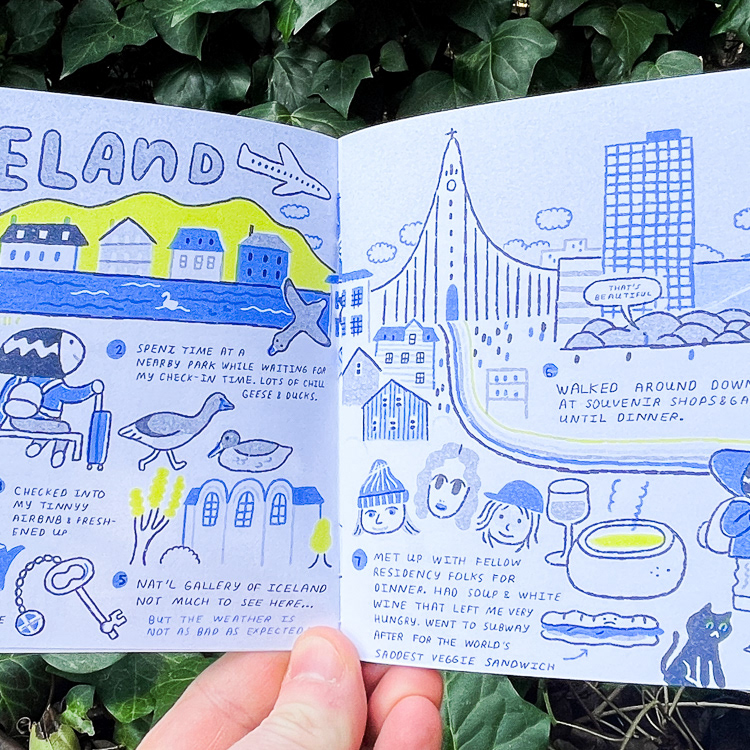 ELAND
2 SPENT TIME AT A
NEARBY PARK WHILE WAITING FOR
MY CHECK-IN TIME. LOTS OF CHILL
GEESE & DUCKS.
CHECKED INTO
MY TINNYY
AIRBNB & FRESH-
ENED UP
5 NAT'L GALLERY OF ICELAND
NOT MUCH TO SEE HERE...
BUT THE WEATHER IS
NOT AS BAD AS EXPECTED
THAT'S
BEAUTIFUL
6. WALKED AROUND DOWN
AT SOUVENIR SHOPS & GA
UNTIL DINNER.
7 MET UP WITH FELLOW
RESIDENCY FOLKS FOR
DINNER. HAD SOUP & WHITE
WINE THAT LEFT ME VERY
HUNGRY. WENT TO SUBWAY
AFTER FOR THE WORLD'S
SADDEST VEGGIE SANDWICH